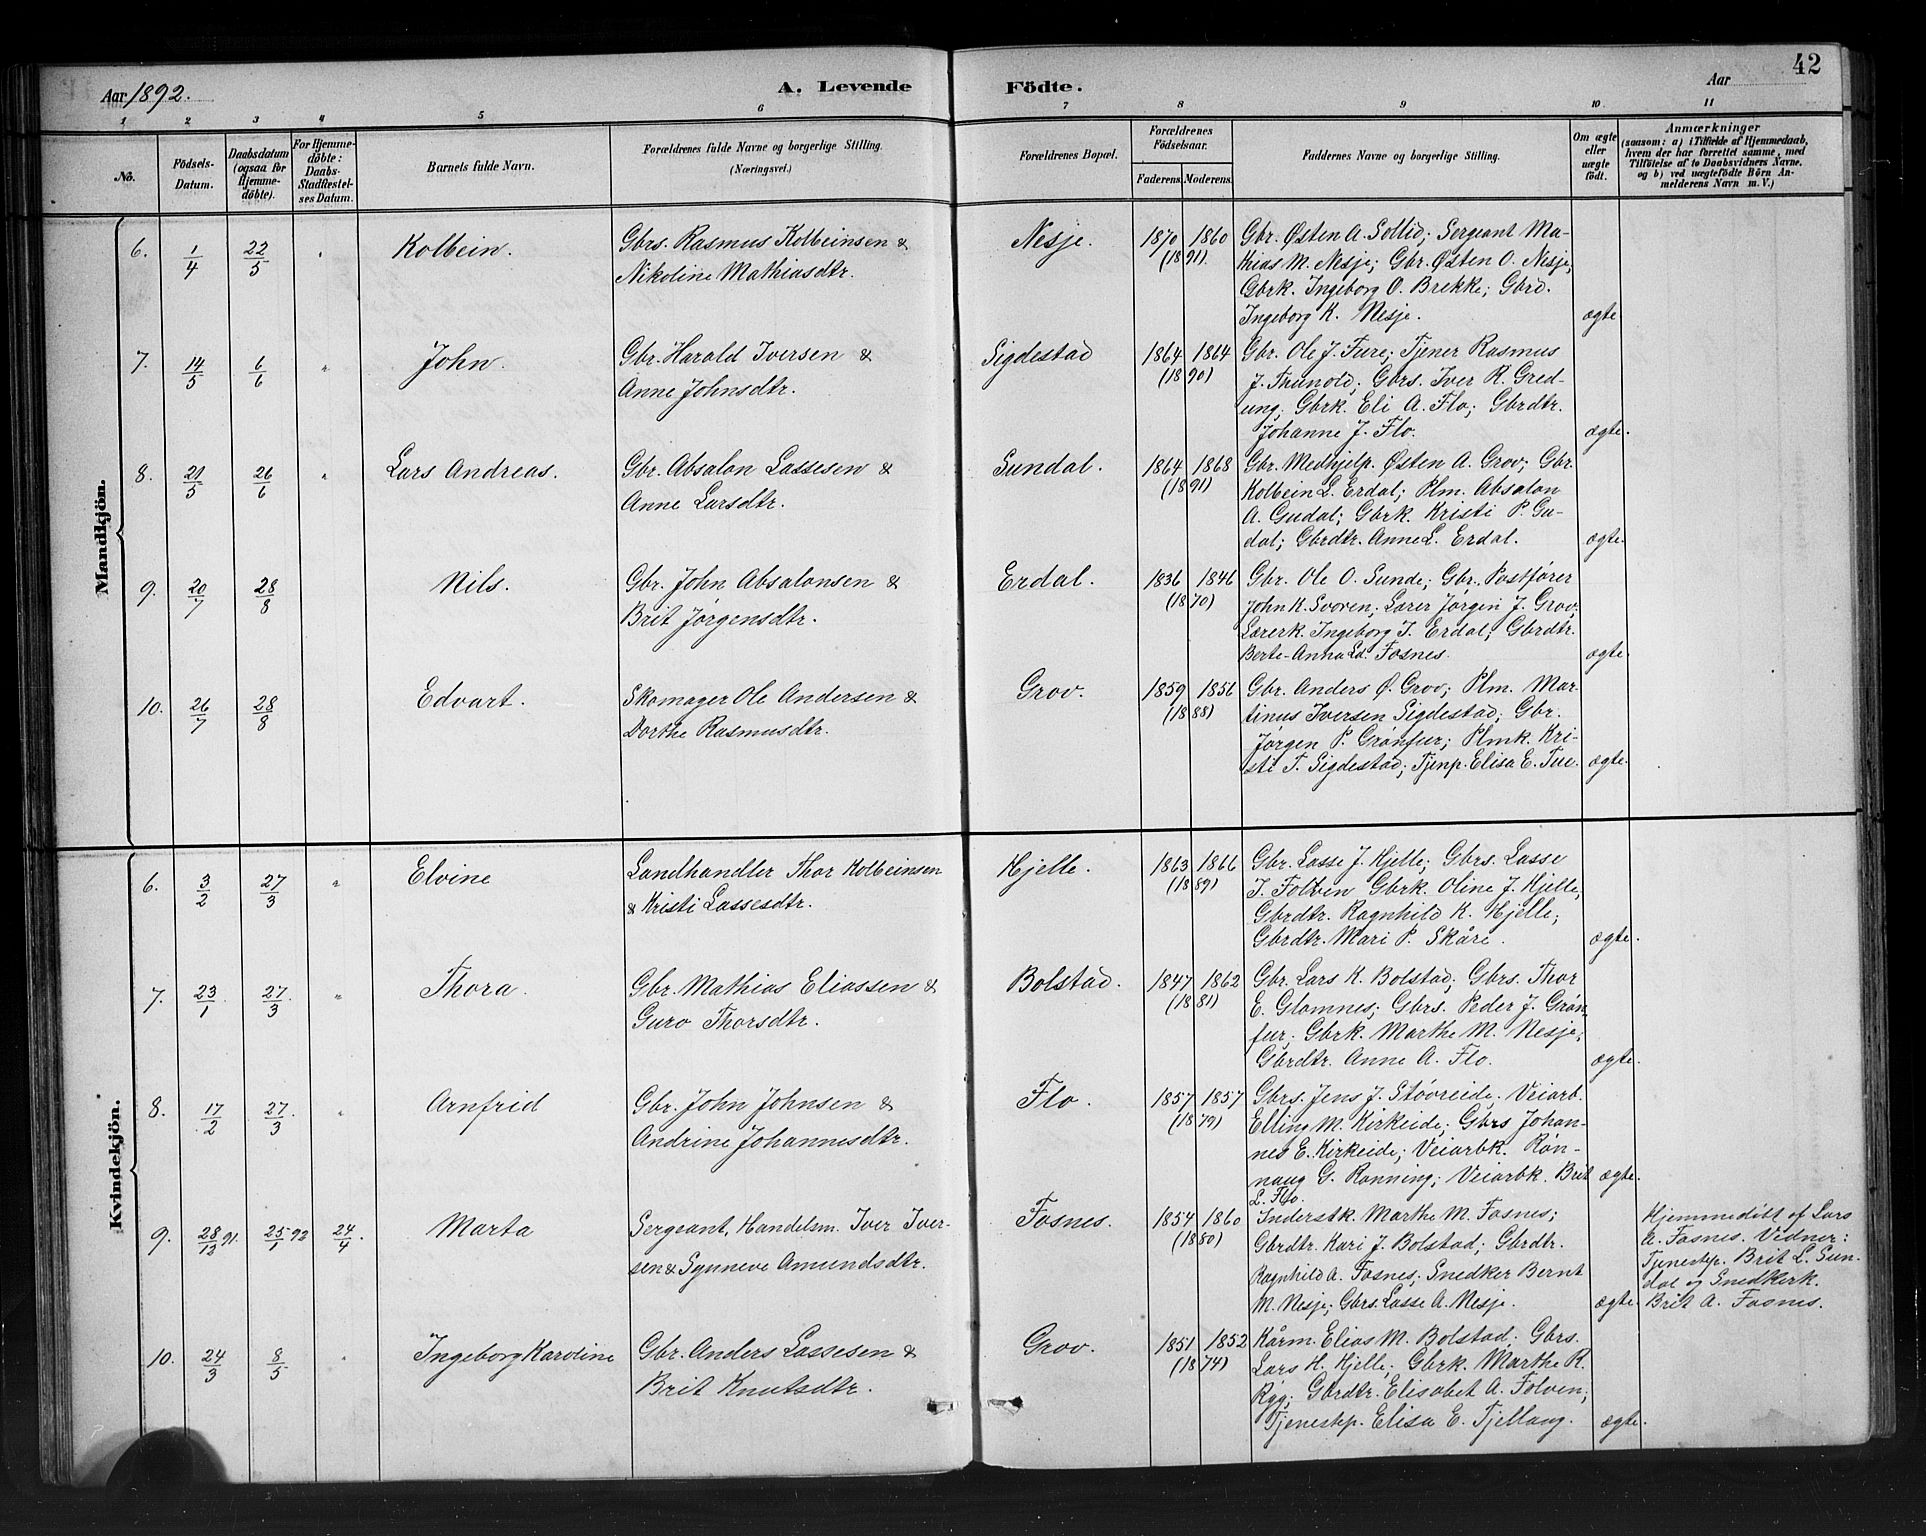 42
Aar 1892.
A. Levende Födte.
Aar
1 2 3 4 5 6 7 8 9 10 11
No.
Födsels-Datum.
Daabsdatum (ogsaa for Hjemme-döbte).
For Hjemme-döbte: Daabs-Stadfæstel-ses Datum.
Barnets fulde Navn.
Forældrenes fulde Navne og borgerlige Stilling. (Næringsvei.)
Forældrenes Bopæl.
Forældrenes Födselsaar.
Faderens. Moderens.
Faddernes Navne og borgerlige Stilling.
Om ægte eller uægte födt.
Anmærkninger
(saasom: a) i Tilfælde af Hjemmedaab, hvem der har forrettet samme, med Tilföielse af to Daabsvidners Navne, og b) ved uægtefödte Börn An-melderens Navn m. V.)
Mandkjön.
6. 1/4 22/5 " Kolbein. Gbrs. Rasmus Kolbeinsen &
Nikoline Mathiasdtr.
Nesje. 1870 1860 (1891)
Gbr. Østen A. Sollid; Sergeant Ma-
thias M. Nesje; Gbr. Østen O. Nesje;
Gbrk. Ingeborg O. Brekke; Gbrd.
Ingeborg K. Nesje. ægte
7. 14/5 6/6 " John. Gbr. Harald Iversen &
Anne Johnsdtr.
Sigdestad 1864 1864 (1890)
Gbr. Ole J. Fure; Tjener Rasmus
J. Trunold; Gbrs. Iver R. Gred-
ung; Gbrk. Eli A. Flo; Gbrdtr.
Johanne J. Flo. ægte.
8. 21/5 26/6 " Lars Andreas. Gbr. Absalon Lassesen &
Anne Larsdtr.
Sundal. 1864 1868 (1891)
Gbr. Medhjelp. Østen A. Grov; Gbr.
Kolbein L. Erdal; Plm. Absalon
A. Gudal; Gbrk. Kristi P. Gu-
dal; Gbrdtr. Anne L. Erdal. ægte.
9. 20/7 28/8 Nils. Gbr. John Absalonsen &
Brit Jørgensdtr.
Erdal. 1836 1846 (1870)
Gbr. Ole O. Sunde; Gbr. Postfører
John K. Svoren; Lærer Jørgen J. Grov;
Lærerk. Ingeborg J. Erdal; Gbrdtr.
Berte-Anna Ld. Fosnes. ægte.
10. 26/7 28/8 Edvart. Skomager Ole Andersen &
Dorthe Rasmusdtr.
Grov. 1859 1856 (1888)
Gbr. Anders Ø. Grov; Plm. Mar-
tinus Iversen Sigdestad; Gbr.
Jørgen P. Grønfur; Plmk. Kri-
sti T. Sigdestad; Tjenp. Elisa E. Tue. ægte.
Kvindekjön.
6. 3/2 27/3 " Elvine Landhandler Thor Kolbeinsen
& Kristi Lassesdtr.
Hjelle. 1863 1866 (1889)
Gbr. Lasse J. Hjelle; Gbrs. Lasse
J. Folven Gbrk. Oline J. Hjelle;
Gbrdtr. Ragnhild K. Hjelle;
Gbrdtr. Mari P. Skåre. ægte.
7. 23/1 27/3 " Thora. Gbr. Mathias Eliassen &
Guro Thorsdtr.
Bolstad. 1847 1862 (1881)
Gbr. Lars K. Bolstad; Gbrs. Thor
E. Glomnes; Gbrs. Peder J. Grøn-
fur; Gbrk. Marthe M. Nesje;
Gbrdtr. Anne A. Flo. ægte.
8. 17/2 27/3 " Arnfrid Gbr. John Johnsen &
Andrine Johannesdtr.
Flo. 1857 1857 (1879)
Gbrs. Jens J. Støvreide. Veiarb.
Elling M. Kirkeide; Gbrs Johan-
nes E. Kirkeide; Veiarbk. Røn-
naug G. Rønning; Veiarbk. Brit
L. Flo. ægte.
9. 28/12 91. 25/1 92 24/4. Marta Sergeant, Handelsm. Iver Iver-
sen & Synneve Amundsdtr.
Fosnes. 1854 1860 (1880)
Inderstk. Marthe M. Fosnes;
Gbrdtr. Kari J. Bolstad; Gbrdtr.
Ragnhild A. Fosnes; Snedker Bernt
M. Nesje; Gbrs. Lasse A. Nesje. ægte
Hjemmedöbt af Lars
A. Fosnes. Vidner:
Tjenestep. Brit L. Sun-
dal og Snedkerk.
Brit A. Fosnes.
10. 24/3 8/5 " Ingeborg Karoline Gbr. Anders Lassesen &
Brit Knutsdtr.
Grov. 1851 1852 (1874)
Kårm. Elias M. Bolstad. Gbrs.
Lars H. Hjelle; Gbrk. Marthe R.
Ryg; Gbrdtr. Elisabet A. Folven;
Tjenestep. Elisa E. Tjellaug. ægte.